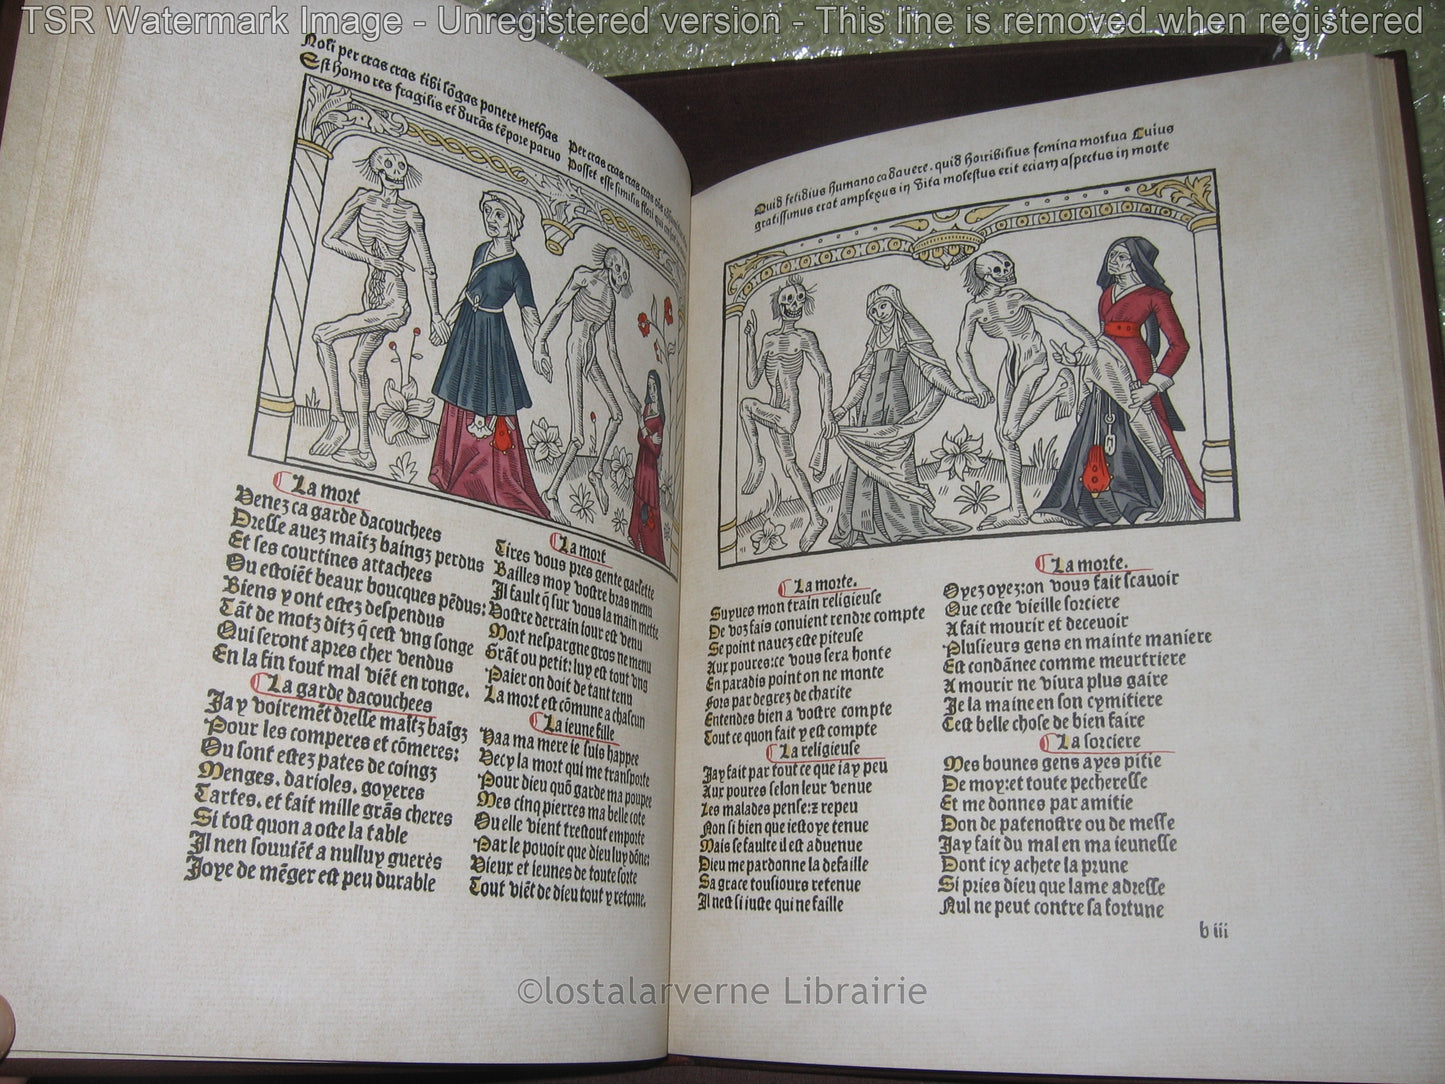 TSR Watermark Image - Unregistered version - This line is removed when registered
Noli per cras cras tibi lõgas ponere methas
Est homo res fragilis et durãs tẽpore paruo
Per cras cras cras cras
Posset esse similis flori qui
La mort
Venez ca garde dacouchees
Dresse auez maĩtz baingz perdus
Et ses courtines attachees
Ou estoiẽt beaux boucques pẽdus:
Biens y ont estez despendus
Tãt de motz ditz q̃ cest vng songe
Qui seront apres cher vendus
En la fin tout mal viẽt en ronge.
La garde dacouchees
Jay voiremẽt dresse maĩtz baĩgz
Pour les comperes et cõmeres:
Ou sont estez pates de coingz
Menges. darioles. goyeres
Tartes. et fait mille grãs cheres
Si tost quon a oste la table
Jl nen souuiẽt a nulluy guerès
Joye de mẽger est peu durable
La mort
Tires vous pres gente garsette
Bailles moy vostre bras menu
Il faule q̃ sur vous la main mette
Vostre derrain iour est venu
Mort nespargne gros ne menu
Grãt ou petit: luy est tout vng
Paier on doit de tant tenu
La mort est cõmune a chascun
La ieune fille
Haa ma mere ie suis happee
Vecy la mort qui me transporte
Pour dieu quõ garde ma poupee
Mes cinq pierres ma belle cote
Ou elle vient trestout emporte
Par le pouoir que dieu luy dõne:
Vieux et ieunes de toute sorte
Tout viẽt de dieu tout y retorne.
Quid fetidius humano cadauere. quid horribilius femina mortua Cuius
gratissimus erat amplexus in vita molestus erit eciam aspectus in morte
La morte.
Suyues mon train religieuse
De voz fais conuient rendre compte
Se point nauez este piteuse
Aux poures:ce vous sera honte
En paradis point on ne monte
Fors par degrez de charite
Entendes bien a vostre compte
Tout ce quon fait y est compte
La religieuse
Jay fait par tout ce que iay peu
Aux poures selon leur venue
Les malades pense:z repeu
Non si bien que iestoye tenue
Mais se faulte il est aduenue
Dieu me pardonne la defaille
Sa grace tousiours retenue
Jl nest si iuste qui ne faille
La morte.
Oyez oyez:on vous fait scauoir
Que ceste vieille sorciere
A fait mourir et deceuoir
Plusieurs gens en mainte maniere
Est condãnee comme meurtriere
A mourir ne viura plus gaire
Je la maine en son cymitiere
Cest belle chose de bien faire
La sorciere
Mes bounes gens ayes pitie
De moy:et toute pecheresse
Et me donnes par amitie
Don de patenostre ou de messe
Jay fait du mal en ma ieunesse
Dont icy achete la prune
Si pries dieu que lame adresse
Nul ne peut contre sa fortune
b iii
©lostalarverne Librairie